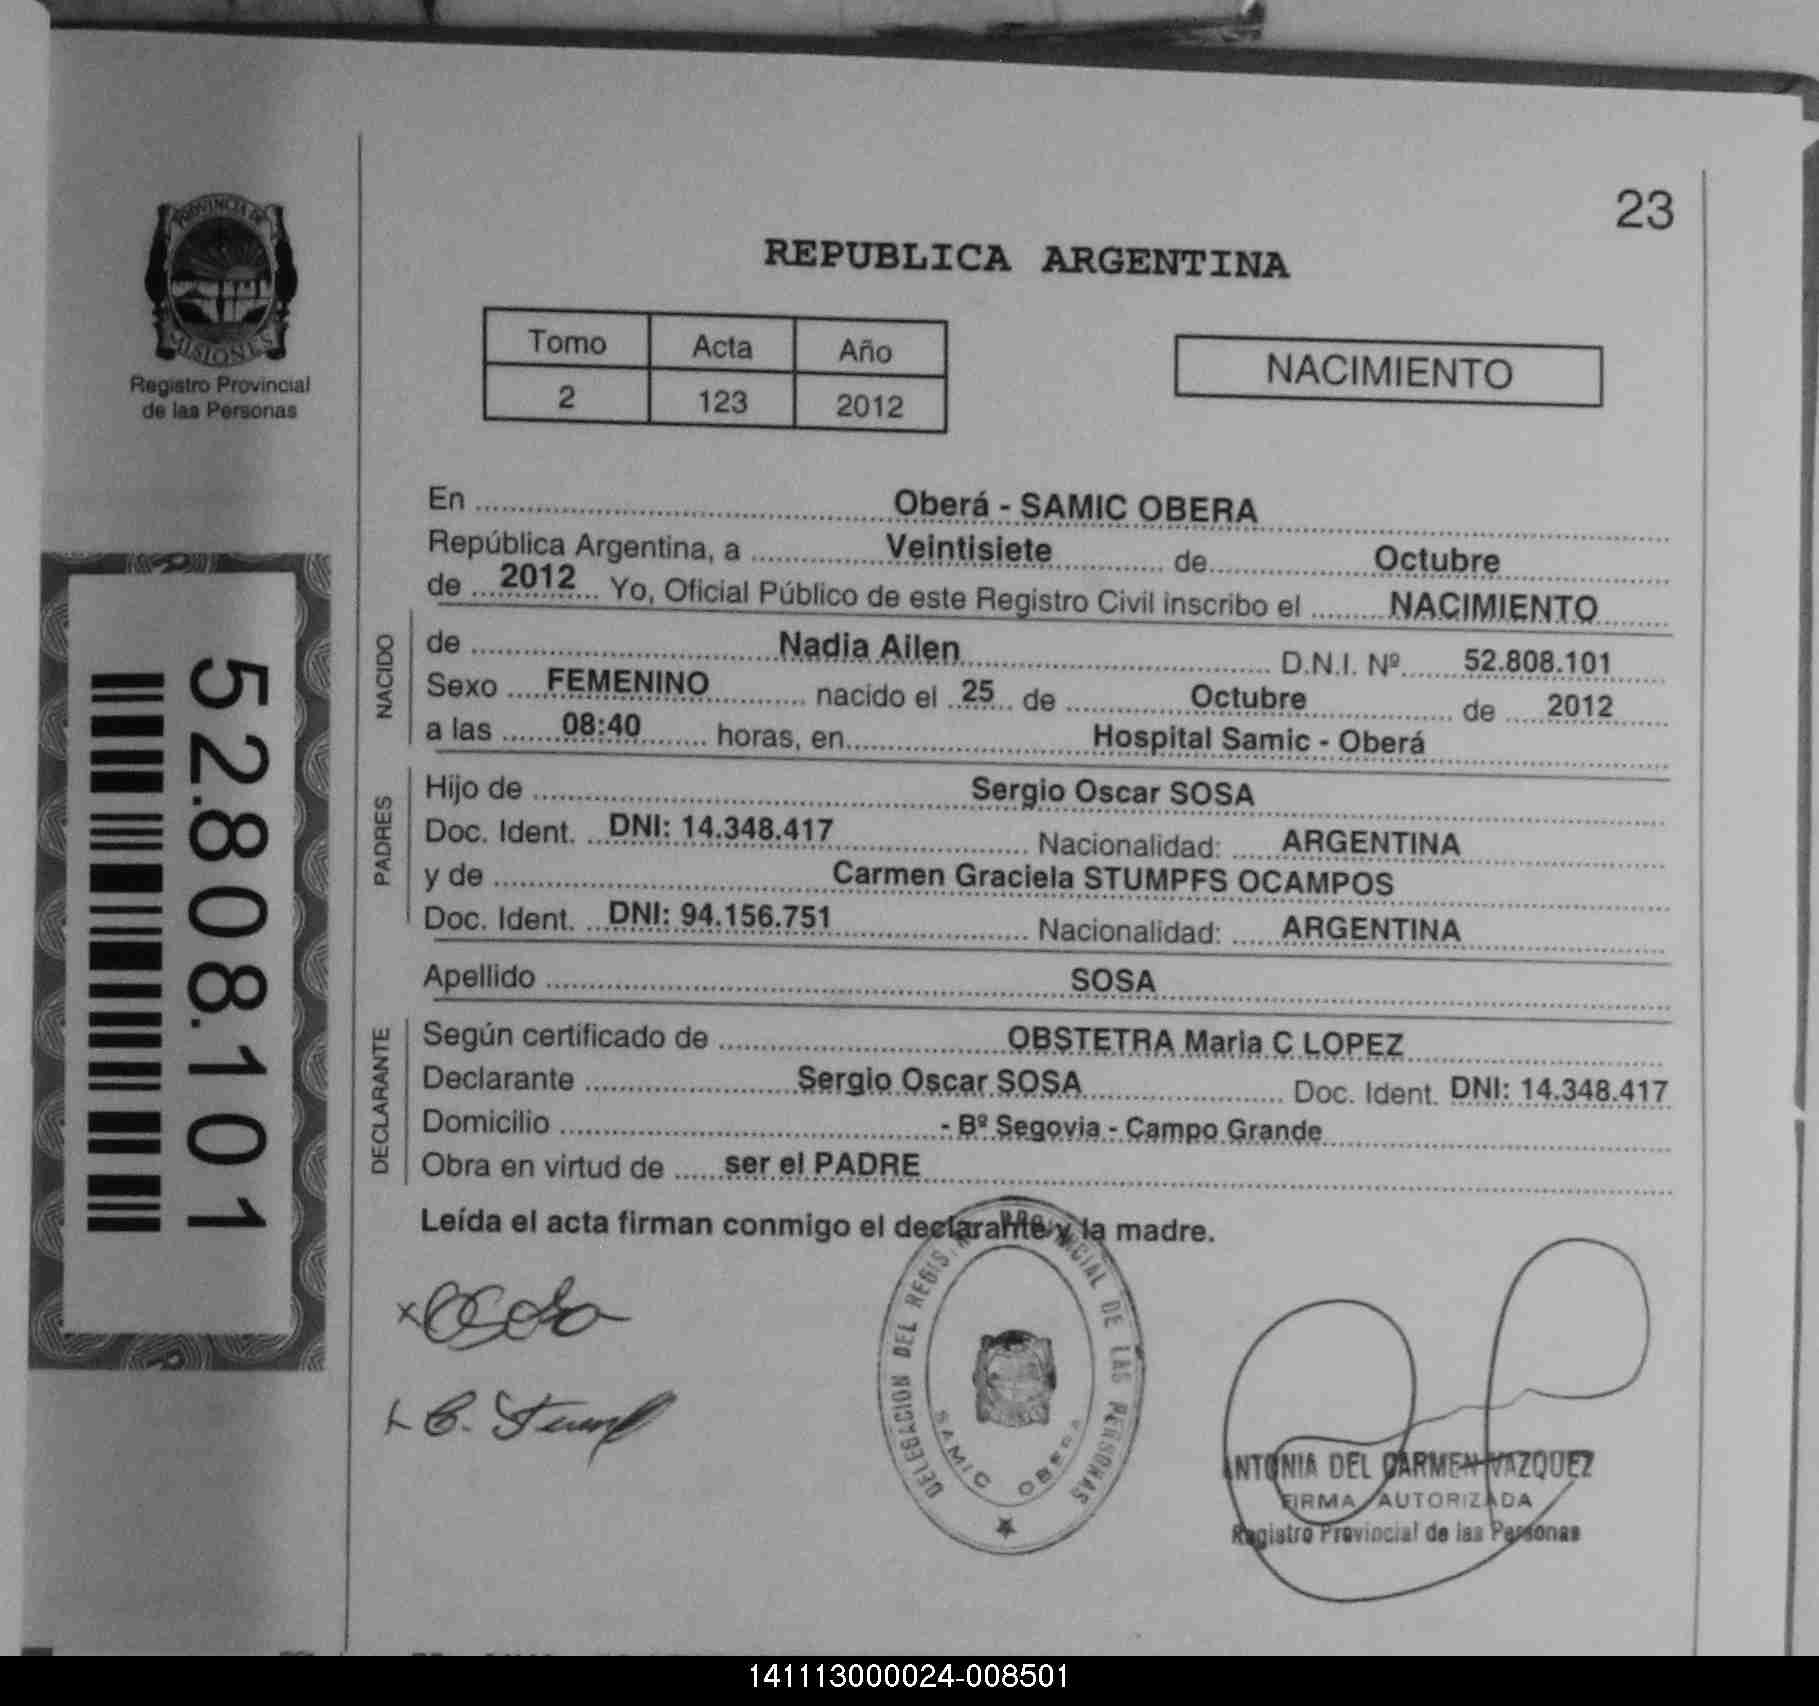 23
PROVINCIA DE
MISIONES
Registro Provincial
de las Personas
REPUBLICA ARGENTINA
Tomo Acta Año
2 123 2012
NACIMIENTO
En Oberá - SAMIC OBERA
República Argentina, a Veintisiete de Octubre
de 2012 Yo, Oficial Público de este Registro Civil inscribo el NACIMIENTO
NACIDO
de Nadia Ailen D.N.I. Nº 52.808.101
Sexo FEMENINO nacido el 25 de Octubre de 2012
a las 08:40 horas, en Hospital Samic - Oberá
PADRES
Hijo de Sergio Oscar SOSA
Doc. Ident. DNI: 14.348.417 Nacionalidad: ARGENTINA
y de Carmen Graciela STUMPFS OCAMPOS
Doc. Ident. DNI: 94.156.751 Nacionalidad: ARGENTINA
Apellido SOSA
DECLARANTE
Según certificado de OBSTETRA Maria C LOPEZ
Declarante Sergio Oscar SOSA Doc. Ident. DNI: 14.348.417
Domicilio - Bº Segovia - Campo Grande
Obra en virtud de ser el PADRE
Leída el acta firman conmigo el declarante y la madre.
52.808.101
DELEGACION DEL REGISTRO PROVINCIAL DE LAS PERSONAS
SAMIC OBERA
ANTONIA DEL CARMEN VAZQUEZ
FIRMA AUTORIZADA
Registro Provincial de las Personas
141113000024-008501